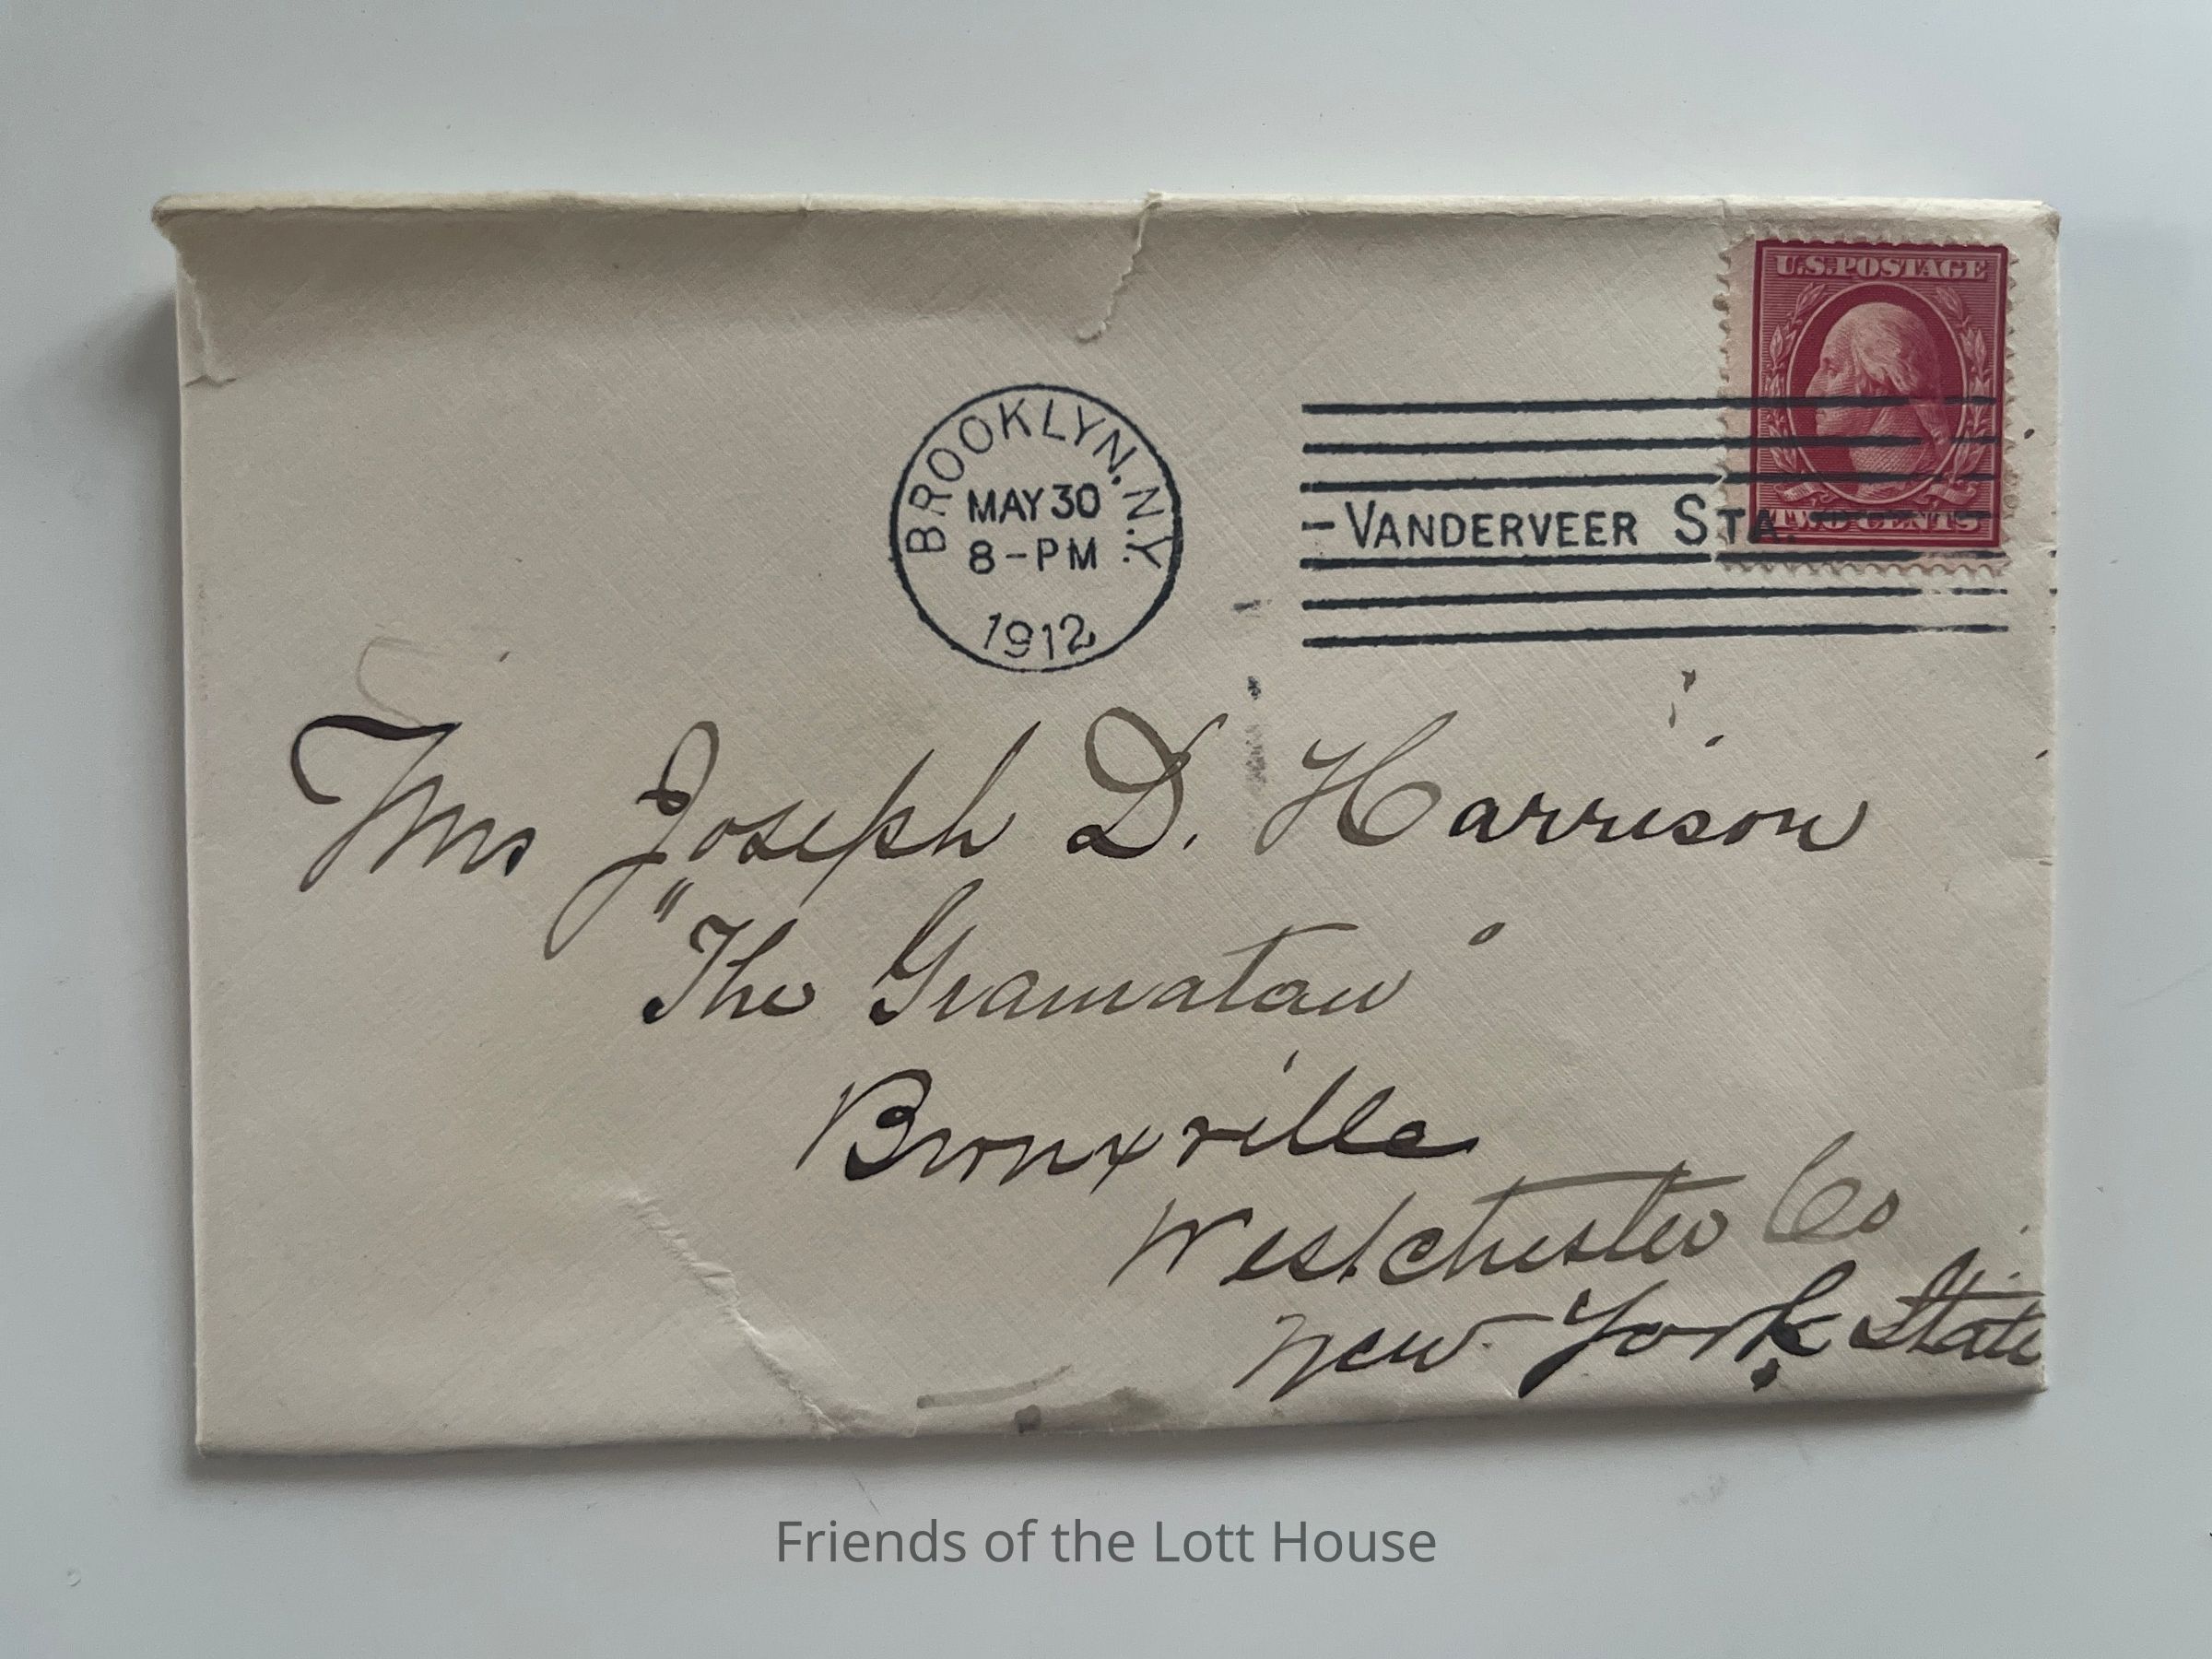 U.S. POSTAGE
BROOKLYN. N.Y.
MAY 30
8-PM
1912
-VANDERVEER STA.
TWO CENTS
Mrs Joseph D. Harrison
"The Gramatan"
Bronxville
Westchester Co
New York State
Friends of the Lott House